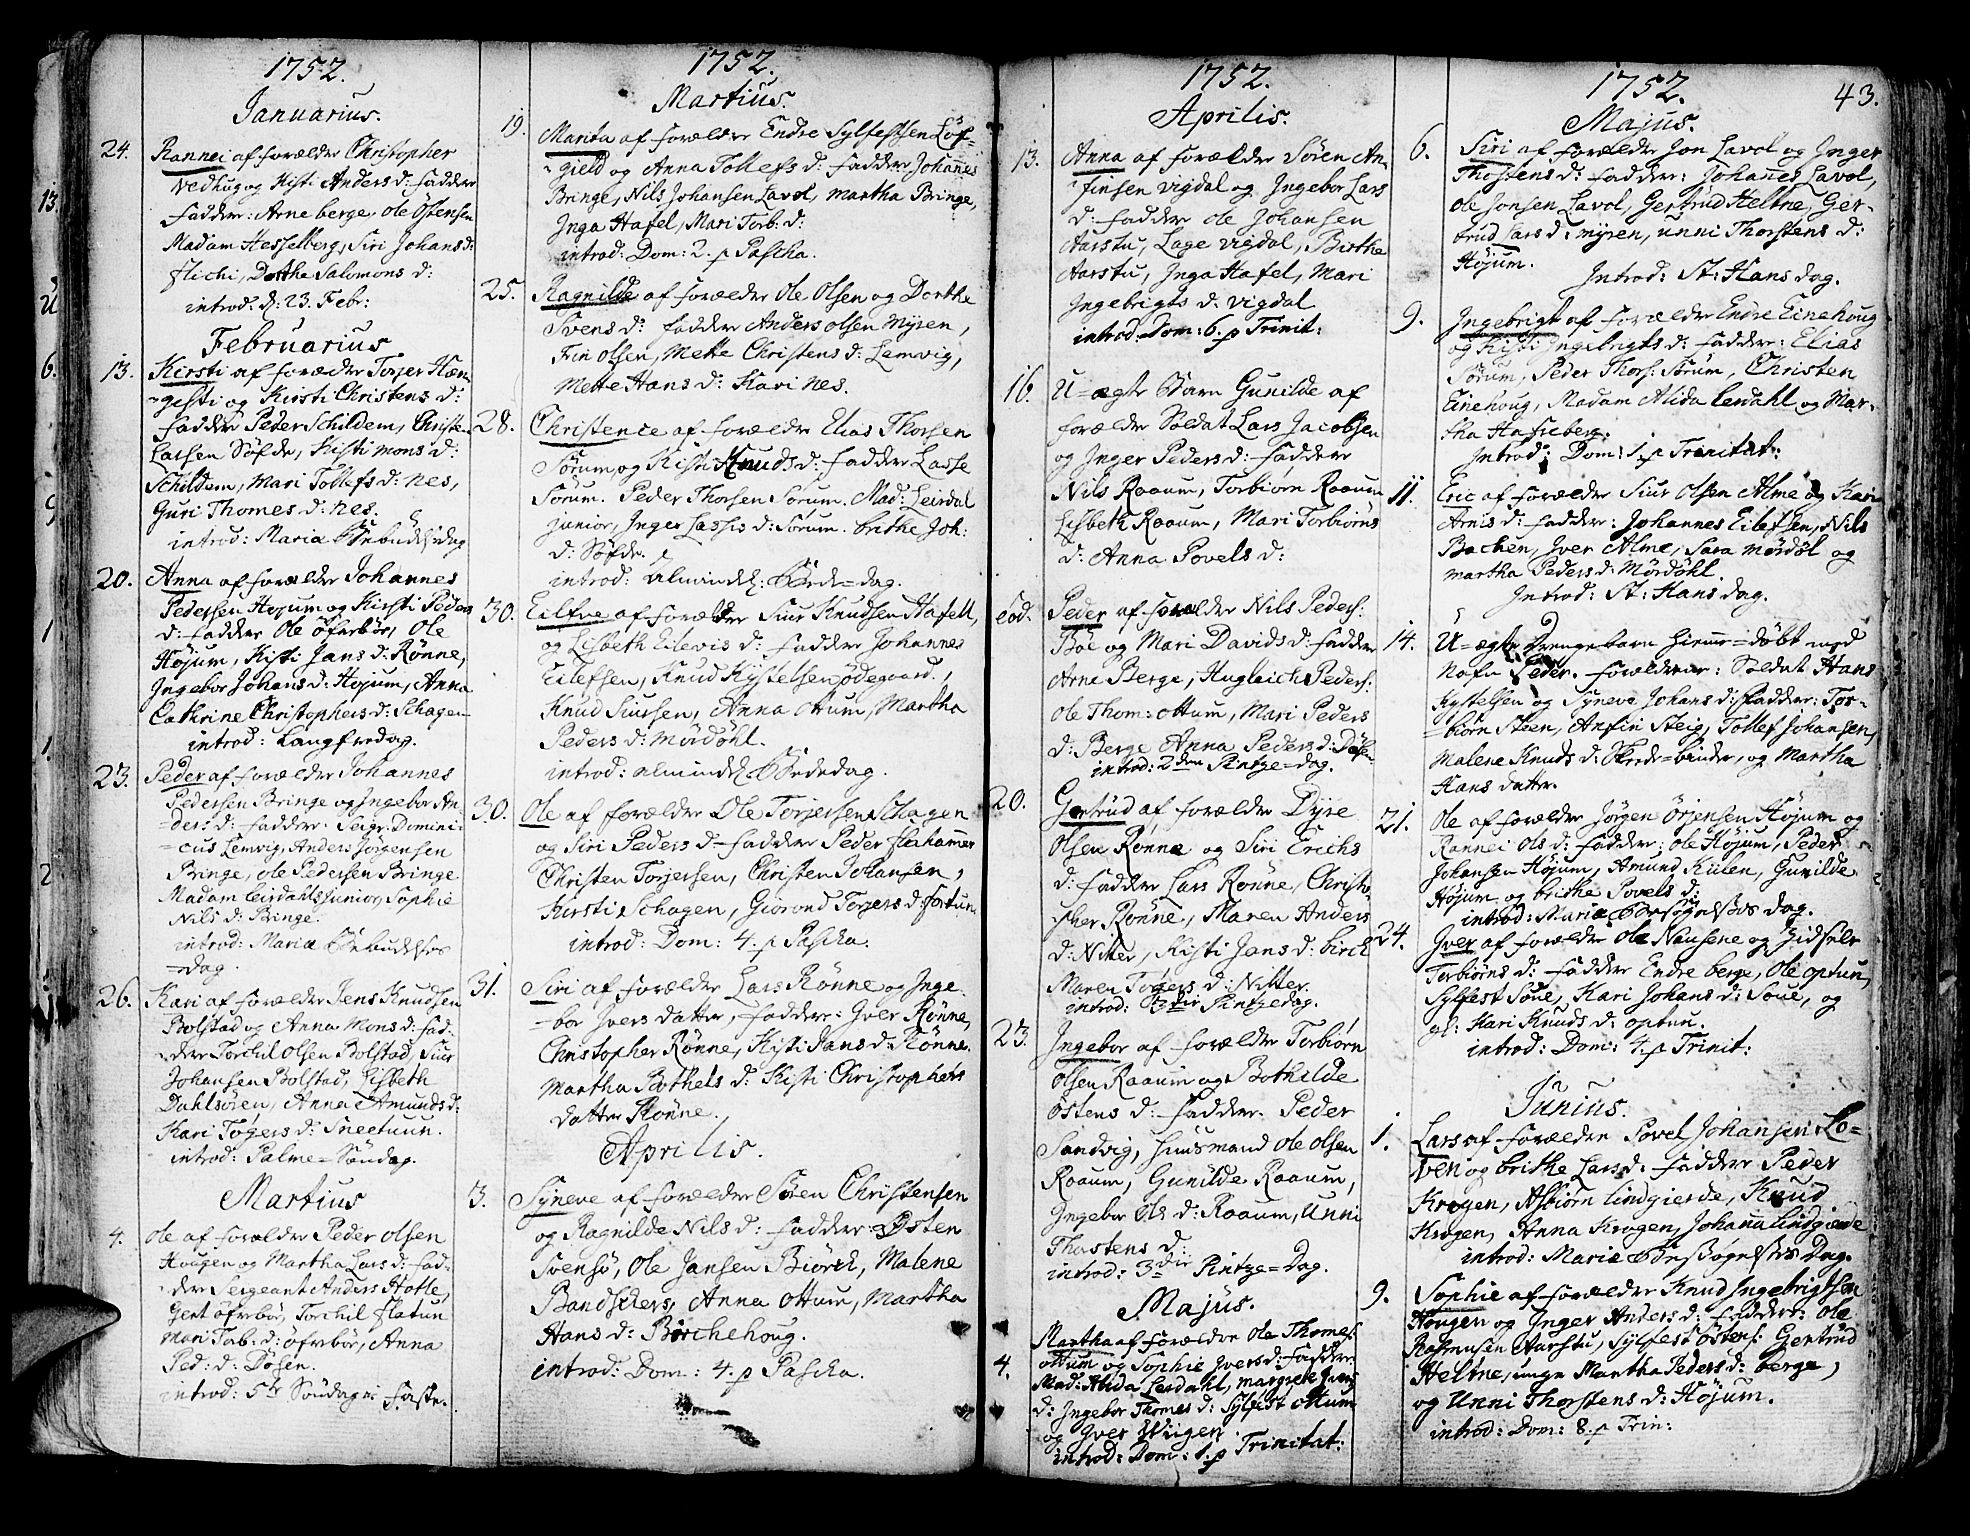 1752.
Januarius.
24. Rannei af forældre Christopher
Vedhug og Kisti Anders d: faddere
Fadder: Arne berge, ole Östensen
Madam Hesselberg, Siri Johans d:
flichi, Dorthe Salomons d:
introd: d: 23. Febr:
Februarius
13. Kirsti af forældre Torjer Hæn-
gesti og Kirsti Christens d:
fadder Peder Schildem, Christen
Larsen Söfde, Kisti Mons d:
Schildem, Mari Tollefs d: Nes,
Guri Thomes d: Nes.
introd: Mariæ Bebudelses dag
20. Anna af forældre Johannes
Pedersen Högum og Kirsti Peders
d: fadder Ole Öfrebör, Ole
Höjum, Kisti Jans d: Rönne,
Ingebor Johans d: Höjum, Anna
Cathrine Christophers d: Schagen
introd: Langfredag.
23. Peder af forældre Johannes
Pedersen Bringe og Ingebor An-
ders d: fadder. Seigr: Domini-
cus Lemvig, Anders Jörgensen
Bringe, ole Pedersen Bringe
Madam Leirdahls Junior, Sophie
Nils d: Bringe.
introd: Mariæ Bebudelses
dag.
26. Kari af forældre Jens Knudsen
Bolstad og Anna Mons d: fad-
der Torchil Olsen Bolstad, Siur
Johansen Bolstad, Lisbeth
Dahlsören, Anna Amunds d:
Kari Tögers d: Sneetuun.
introd: Palme-Söndag.
Martius
4. Ole af forældre Peder Olsen
Hougen og Martha Lars d: fad-
der Sergeant Anders Holte,
Gert öfrebö, Torchil flatun
Mari Torb: d: öfrebör, Anna
Ped: d: Dösen.
introd: 5te Söndag i faste.
1752.
Martius.
19. Marita af forældre Endre Sylfestsen Löf-
gield og Anna Tollefs d: fadder Johannes
Bringe, Nils Johansen Lavol, Martha Bringe,
Inga Hafel, Mari Torb: d:
introd: Dom: 2. p Pascha.
25. Ragnilde af forældre Ole Olsen og Dorthe
Svens d: fadder Anders olsen Myren,
Fin olsen, Mette Christens d: Lemvig,
Mette Hans d: Kari Nes.
28. Christence af forældre Elias Thorsen
Sörum, og Kisti Knuds d: fadder Lasse
Sörum. Peder Thorsen Sörum. Mad: Leirdal
junior, Inger Lassis d: Sörum. brithe Joh:
d: Söfde.
introd: Almindel: Bede-dag.
30. Eilfve af forældre Siur Knudsen Hafell,
og Lisbeth Eilevis d: fadder Johannes
Eilefsen, Knud Kystelsen ödegaard,
Knud Siursen, Anna Ottum, Martha
Peders d: Mördöhl.
introd: almindel Bededag.
30. Ole af forældre Ole Torjersen Schagen
og Siri Peders d: fadder Peder flahamer
Christen Torjersen, Christen Johansen,
Kirsti Schagen, Giorond Torjers d: fortun
introd: Dom: 4. p Pascha.
31. Siri af forældre Lars Rönne og Inge-
bor Jvers datter, fadder: Jver Rönne,
Christopher Rönne, Kisti Jans d: Rönne.
Martha Bothels d: Kisti Christophers
datter Rönne.
Aprilis.
3. Syneve af forældre Sören Christensen
og Ragnilde Nils d: fadder: Östen
Svensö, Ole Jansen Biörch, Malene
Bandschers, Anna Ottum, Martha
Hans d: Börchehoug.
introd: Dom: 4. p Pascha.
1752.
Aprilis.
13. Anna af forældre Sören An-
finsen Vigdal og Ingebor Lars
d: fadder ole Johansen
Aarstu, Lage Vigdal, Birthe
Aarstu, Inga Hafel, Mari
Ingebrigts d: Vigdal
introd. Dom: 6. p Trinit:
16. U-ægte Barn Gunilde af
forældre Soldat Lars Jacobsen
og Inger Peders d: fadder
Nils Raaum, Torbiörn Raaum
Lisbeth Raaum, Mari Torbiörns
d: Anna Povels d:
eod. Peder af forældre Nils Peders:
Böe og Mari Davids d: fadder
Arne Berge, Hugleich Peders:
Ole Thom: Ottum, Mari Peders
d: Berge Anna Peders d: Dösen
introd: 2den Pintze-dag.
20. Gertrud af forældre Dyre
Olsen Rönne og Siri Erichs
d: fadder Lars Rönne, Christo-
pher Rönne, Maren Anders
d: Niter, Kisti Jans d: birch
Maren Tögers d: Nitter.
introd: 3die Pintzedag.
23. Ingebor af forældre Torbiörn
Olsen Raaum og Bothilde
Östens d: fadder. Peder
Sandvig, Huusmand Ole Olsen
Raaum, Gunilde Raaum,
Ingebor Ols d: Raaum, Unni
Thostens d:
introd: 3die Pintze-Dag.
Majus.
4. Martha af forældre Ole Thomes:
ottum og Sophie Jvers d: fadder:
Mad: Alida Lerdahl, margrete Jvers
d: Ingebor Thomes d: Sylfest Ottum
og Jver Wiigen
introd: Dom: 1. p Trinitat:
1752.
43.
Majus.
6. Siri af forældre Jon Lavol og Inger
Thostens d: fadder: Johannes Lavol,
Ole Jonsen Lavol, Gertrud Heltne, Ger-
trud Lars d: myren, unni Thorstens d:
Höjum.
Introd: St: Hans dag.
9. Ingebrigt af forældre Endre Einehoug
og Kisti Ingebrigts d: fadder: Elias
Sörum, Peder Thors: Sörum, Christen
Einehoug, Madam Alida Lerdahl og Mar-
tha Hafseberg.
Introd: Dom: 1. p Trinitat:
11. Eric af forældre Siur Olsen Alme og Kari
Arnis d: fadder: Johannes Eilefsen, Nils
Bachen, Jver Alme, Sara Mördöl og
Martha Peders d: Mördöhl.
Introd: St: Hans dag.
14. U-ægte Drengebarn hieme-döbt med
Nafn Peder. forældrene: Soldat Hans
Kystelsen og Syneve Johans d: fadder: Tor-
biörn Steen, Anfin Steig, Tollef Johansen,
Malene Knuds d: Skrede-binder, og Martha
Hans datter.
21. Ole af forældre Jörgen Örjensen Höjum og
Rannei Ols d: fadder: ole Höjum, Peder
Johansen Höjum, Amund Kulen, Gunilde
Höjum og brithe Povels d:
introd: Mariæ Besögelses dag.
24. Jver af forældre Ole Nausene og Zidsele
Torbiörns d: fadder Endre berge, Ole optun,
Sylfest Soue, Kari Johans d: Soue, og
gl: Kari Knuds d: optun.
introd: Dom: 4. p Trinit:
Junius.
1. Lars af forældre Povel Johansen Lo-
ven og brithe Lars d: fadder Peder
Krogen, Asbiörn lindgierde, Knud
Krogen, Anna Krogen, Johanna lindgierde
introd: Mariæ Besögelses Dag.
9. Sophie af forældre Knud Ingebrigtsen
Hougen og Inger Anders d: fadder: Ole
Rasmusen Aarstu, Sylfest Östens: Gertrud
Heltne, unge Martha Peders d: berge,
og Unni Thorstens d: Höjum.
introd: Dom: 8. p Trin: